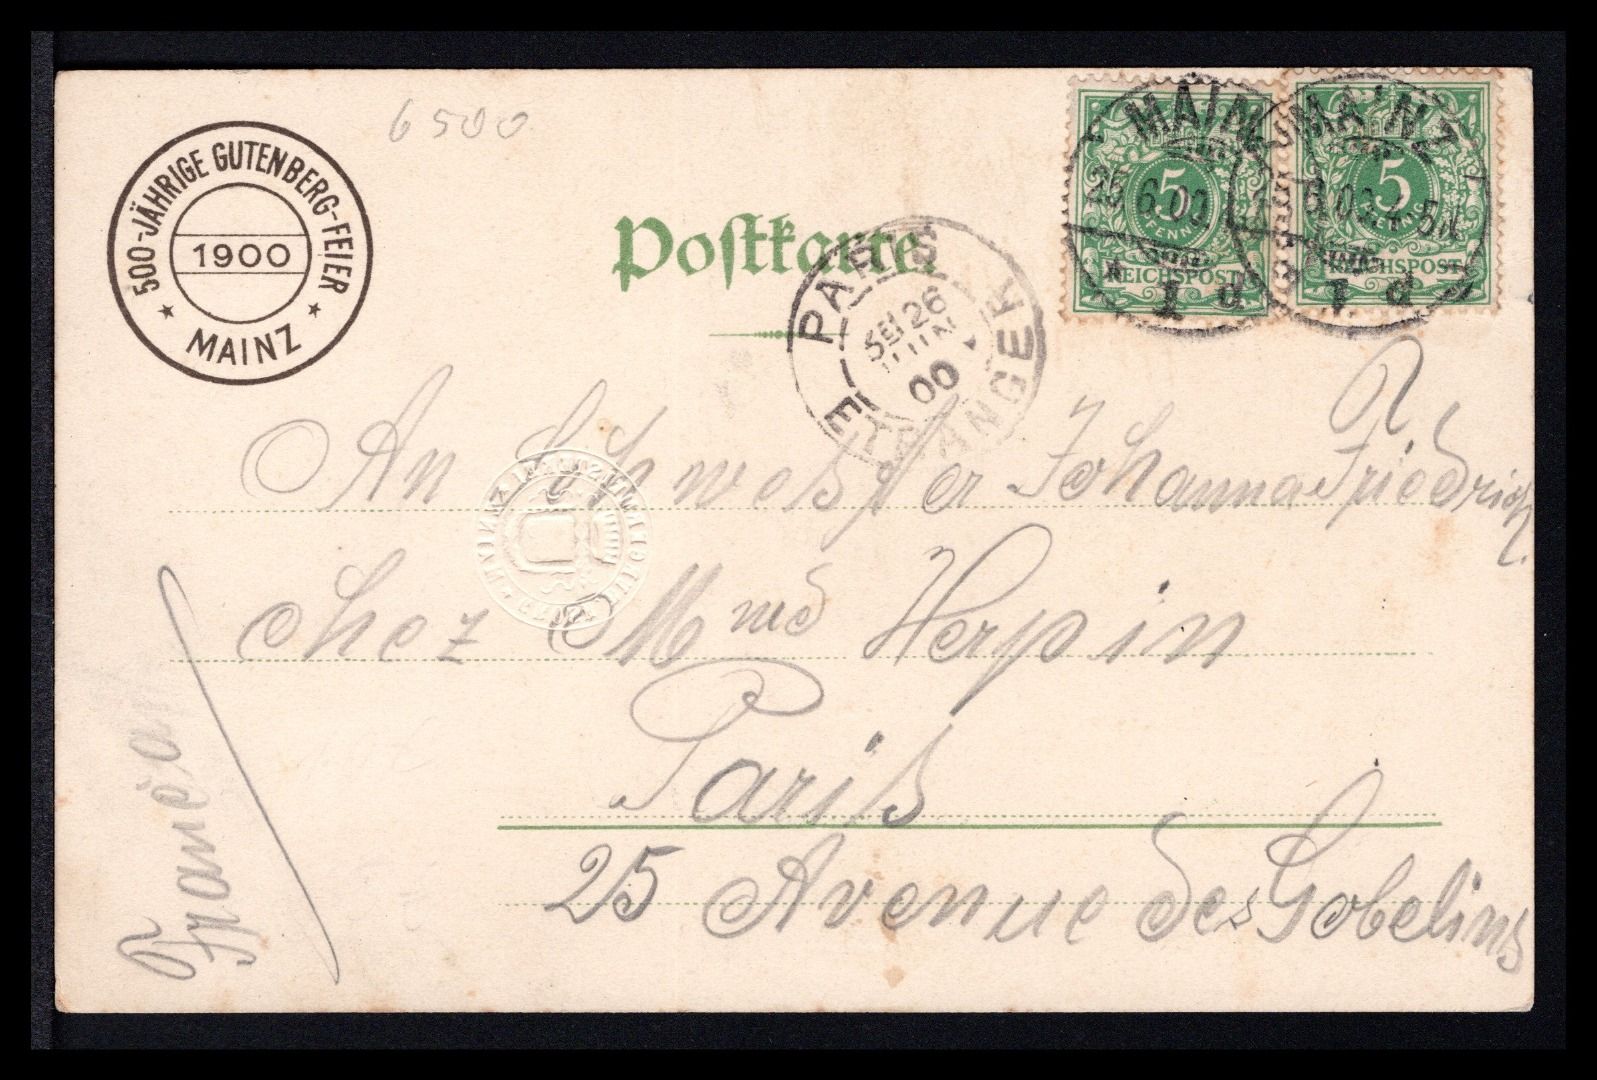 6500
500-JÄHRIGE GUTENBERG-FEIER
1900
★ MAINZ ★
Postkarte
MAINZ
25 6.00
1 d
MAINZ
6.00
1 d
5
PFENNIG
REICHSPOST
5
PFENNIG
REICHSPOST
PARIS
ETRANGER
26
JUIN
00
An Schwester Johanna Friedrich
chez Mme Herpin
Paris
25 Avenue des Gobelins